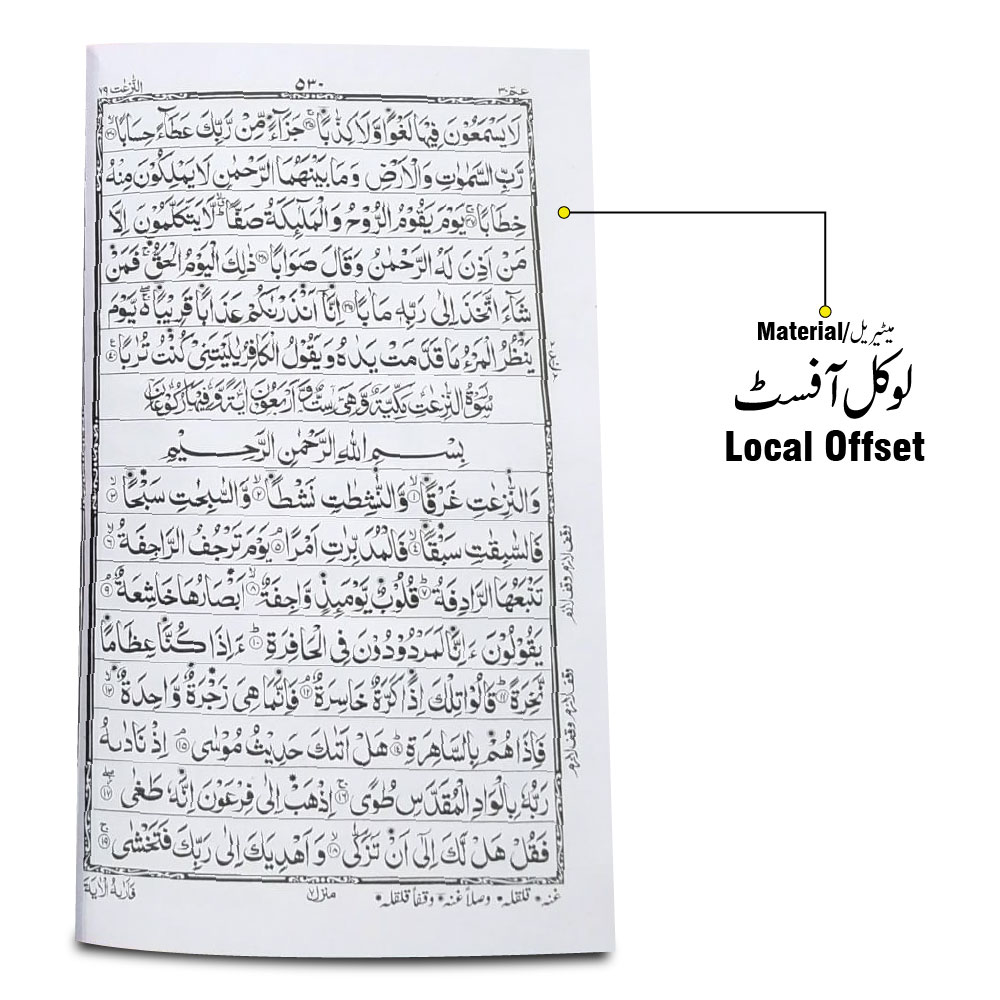 عم ٣٠
٥٣٠
النّٰزعٰت ٧٩
لَا يَسْمَعُوْنَ فِيْهَا لَغْوًا وَّلَا كِذّٰبًا ۚ﴿٣٥﴾ جَزَآءً مِّنْ رَّبِّكَ عَطَآءً حِسَابًا ۙ﴿٣٦﴾
رَّبِّ السَّمٰوٰتِ وَالْاَرْضِ وَمَا بَيْنَهُمَا الرَّحْمٰنِ لَا يَمْلِكُوْنَ مِنْهُ
خِطَابًا ۚ﴿٣٧﴾ يَوْمَ يَقُوْمُ الرُّوْحُ وَالْمَلٰٓئِكَةُ صَفًّا ۙۗ لَّا يَتَكَلَّمُوْنَ اِلَّا
مَنْ اَذِنَ لَهُ الرَّحْمٰنُ وَقَالَ صَوَابًا ﴿٣٨﴾ ذٰلِكَ الْيَوْمُ الْحَقُّ ۚ فَمَنْ
شَآءَ اتَّخَذَ اِلٰى رَبِّهٖ مَاٰبًا ﴿٣٩﴾ اِنَّآ اَنْذَرْنٰكُمْ عَذَابًا قَرِيْبًا ۖۚ يَّوْمَ
يَنْظُرُ الْمَرْءُ مَا قَدَّمَتْ يَدٰهُ وَيَقُوْلُ الْكٰفِرُ يٰلَيْتَنِيْ كُنْتُ تُرٰبًا ﴿٤٠﴾
سُوْرَةُ النّٰزِعٰتِ مَكِّيَّةٌ وَّهِيَ سِتٌّ وَّاَرْبَعُوْنَ اٰيَةً وَّفِيْهَا رُكُوْعَانِ
بِسْمِ اللّٰهِ الرَّحْمٰنِ الرَّحِيْمِ
وَالنّٰزِعٰتِ غَرْقًا ۙ﴿١﴾ وَّالنّٰشِطٰتِ نَشْطًا ۙ﴿٢﴾ وَّالسّٰبِحٰتِ سَبْحًا ۙ﴿٣﴾
فَالسّٰبِقٰتِ سَبْقًا ۙ﴿٤﴾ فَالْمُدَبِّرٰتِ اَمْرًا ۘ﴿٥﴾ يَوْمَ تَرْجُفُ الرَّاجِفَةُ ۙ﴿٦﴾
تَتْبَعُهَا الرَّادِفَةُ ۗ﴿٧﴾ قُلُوْبٌ يَّوْمَئِذٍ وَّاجِفَةٌ ۙ﴿٨﴾ اَبْصَارُهَا خَاشِعَةٌ ۘ﴿٩﴾
يَقُوْلُوْنَ ءَاِنَّا لَمَرْدُوْدُوْنَ فِي الْحَافِرَةِ ۗ﴿١٠﴾ ءَاِذَا كُنَّا عِظَامًا
نَّخِرَةً ۗ﴿١١﴾ قَالُوْا تِلْكَ اِذًا كَرَّةٌ خَاسِرَةٌ ۘ﴿١٢﴾ فَاِنَّمَا هِيَ زَجْرَةٌ وَّاحِدَةٌ ۙ﴿١٣﴾
فَاِذَا هُمْ بِالسَّاهِرَةِ ۗ﴿١٤﴾ هَلْ اَتٰىكَ حَدِيْثُ مُوْسٰى ۘ﴿١٥﴾ اِذْ نَادٰىهُ
رَبُّهٗ بِالْوَادِ الْمُقَدَّسِ طُوًى ۚ﴿١٦﴾ اِذْهَبْ اِلٰى فِرْعَوْنَ اِنَّهٗ طَغٰى ۖ﴿١٧﴾
فَقُلْ هَلْ لَّكَ اِلٰٓى اَنْ تَزَكّٰى ۙ﴿١٨﴾ وَاَهْدِيَكَ اِلٰى رَبِّكَ فَتَخْشٰى ۚ﴿١٩﴾
وقف لازم وقف لازم
وقف لازم وقف لازم
غنه قلقله وصلاً غنه وقفاً قلقله
منزل ٧
Material/میٹیریل
لوکل آفسٹ
Local Offset